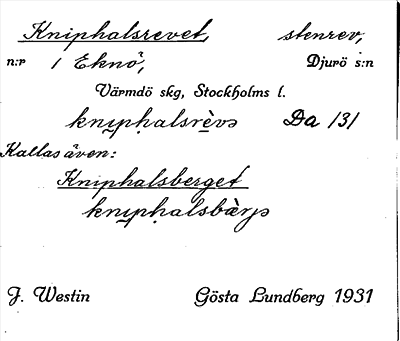 Kniphalsrevet, stenrev,
n:r 1 Eknö, Djurö s:n
Värmdö skg, Stockholms l.
kni̲pḥalsrèvə Da 131
Kallas även:
Kniphalsberget
kni̲pḥalsbæ̀rjə
J. Westin Gösta Lundberg 1931